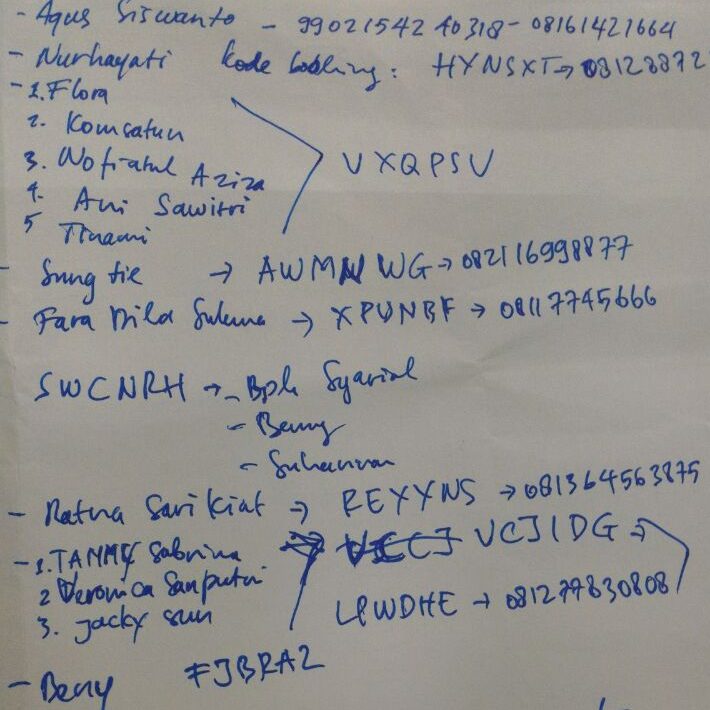 - Agus Siswanto - 9902154240318 - 08161421664
- Nurhayati kode booking: HYNSXT → 08128872
- 1. Flora
2. Komsatun
3. Nofiatul Aziza
VXQPSV
4. Ani Sawitri
5 Tinami
- Sung tie → AWMNWG → 082116998877
- Fara Dila Sukma → XPUNBF → 08117745666
SWCNRH → - Bpk Syarial
- Benny
- Suherman
- Ratna Sari Kiat → REXYNS → 081364563875
- 1. TANMY Sabrina → VCJIDG →
2 Veronica Sanputri
3. Jacky sun
LPWDHE → 081277830808
- Beny FJBRA2